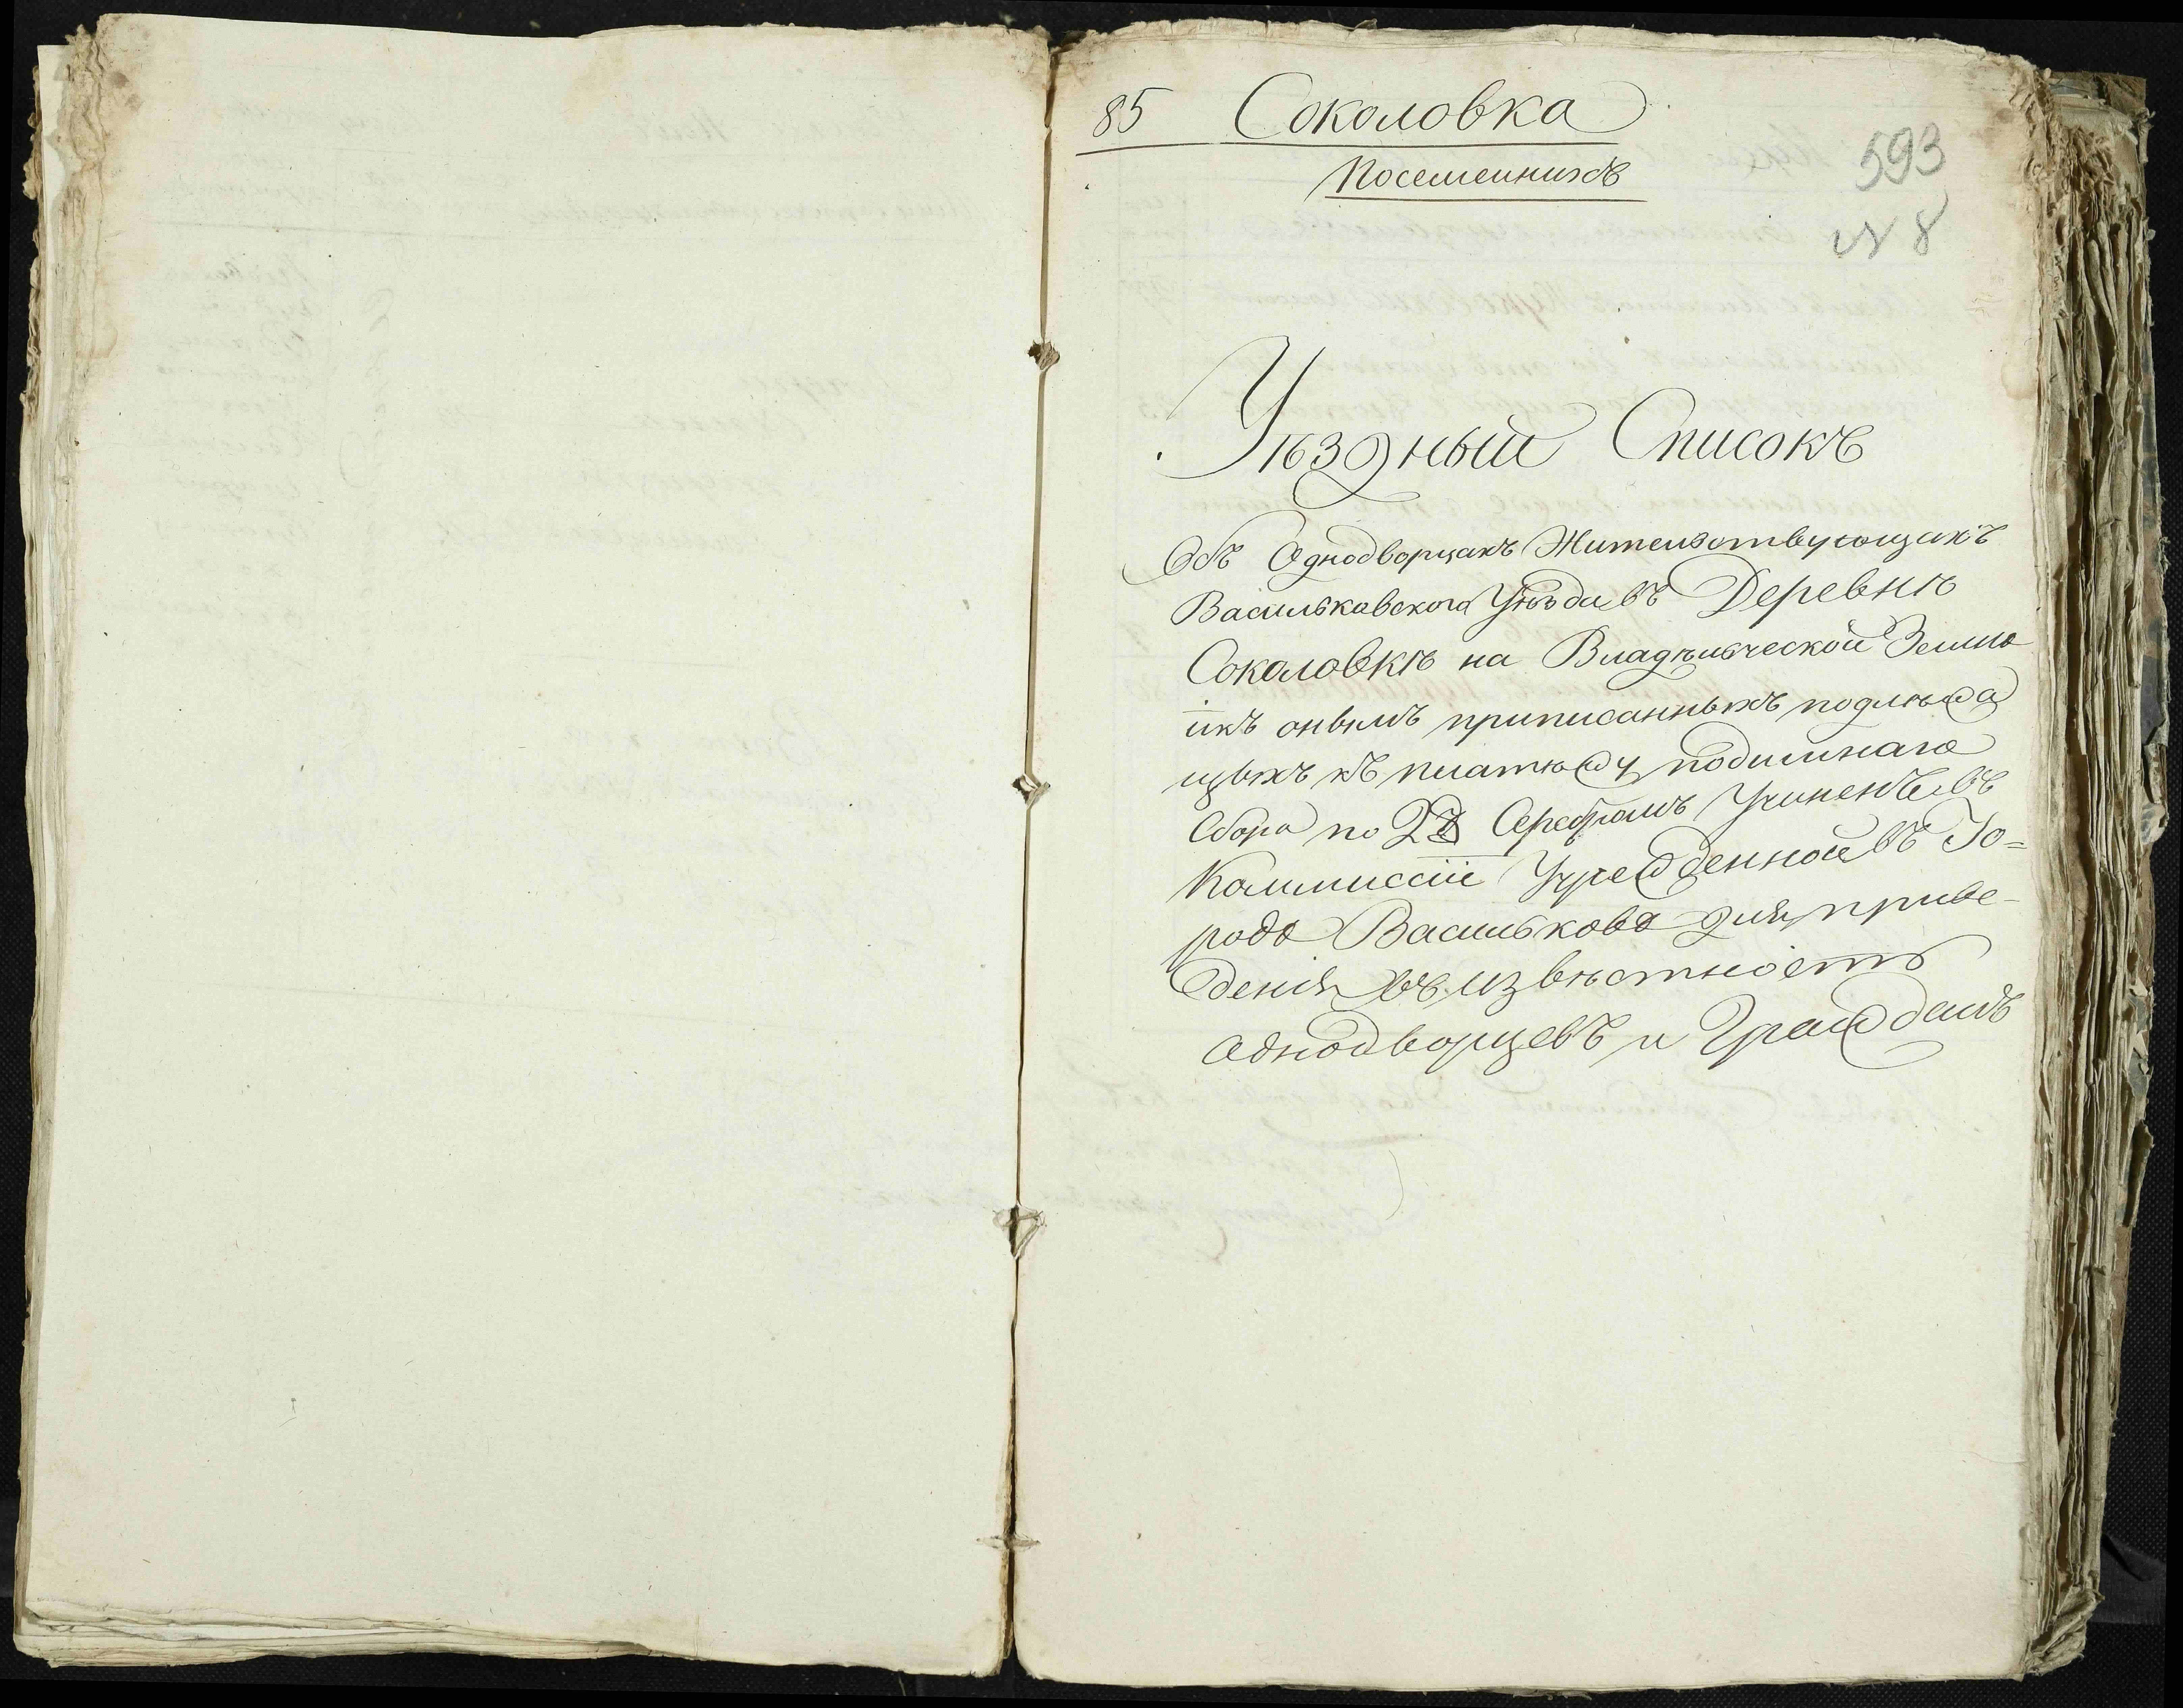 85 Соколовка
Посемейникъ
593
№ 8
Уѣздный Списокъ
Объ Однодворцахъ Жительствующихъ
Васильковскаго Уѣзда въ Деревнѣ
Соколовкѣ на Владѣльческой Землѣ
икъ онымъ приписанныхъ подлѣжа
щыхъ къ платежу подымнаго
Сбора по Серебромъ Учиненъ въ
Коммиссіи Учрежденной въ Го=
родѣ Васильковѣ для приве-
денія въ извѣстность
Однодворцевъ и Гражданъ